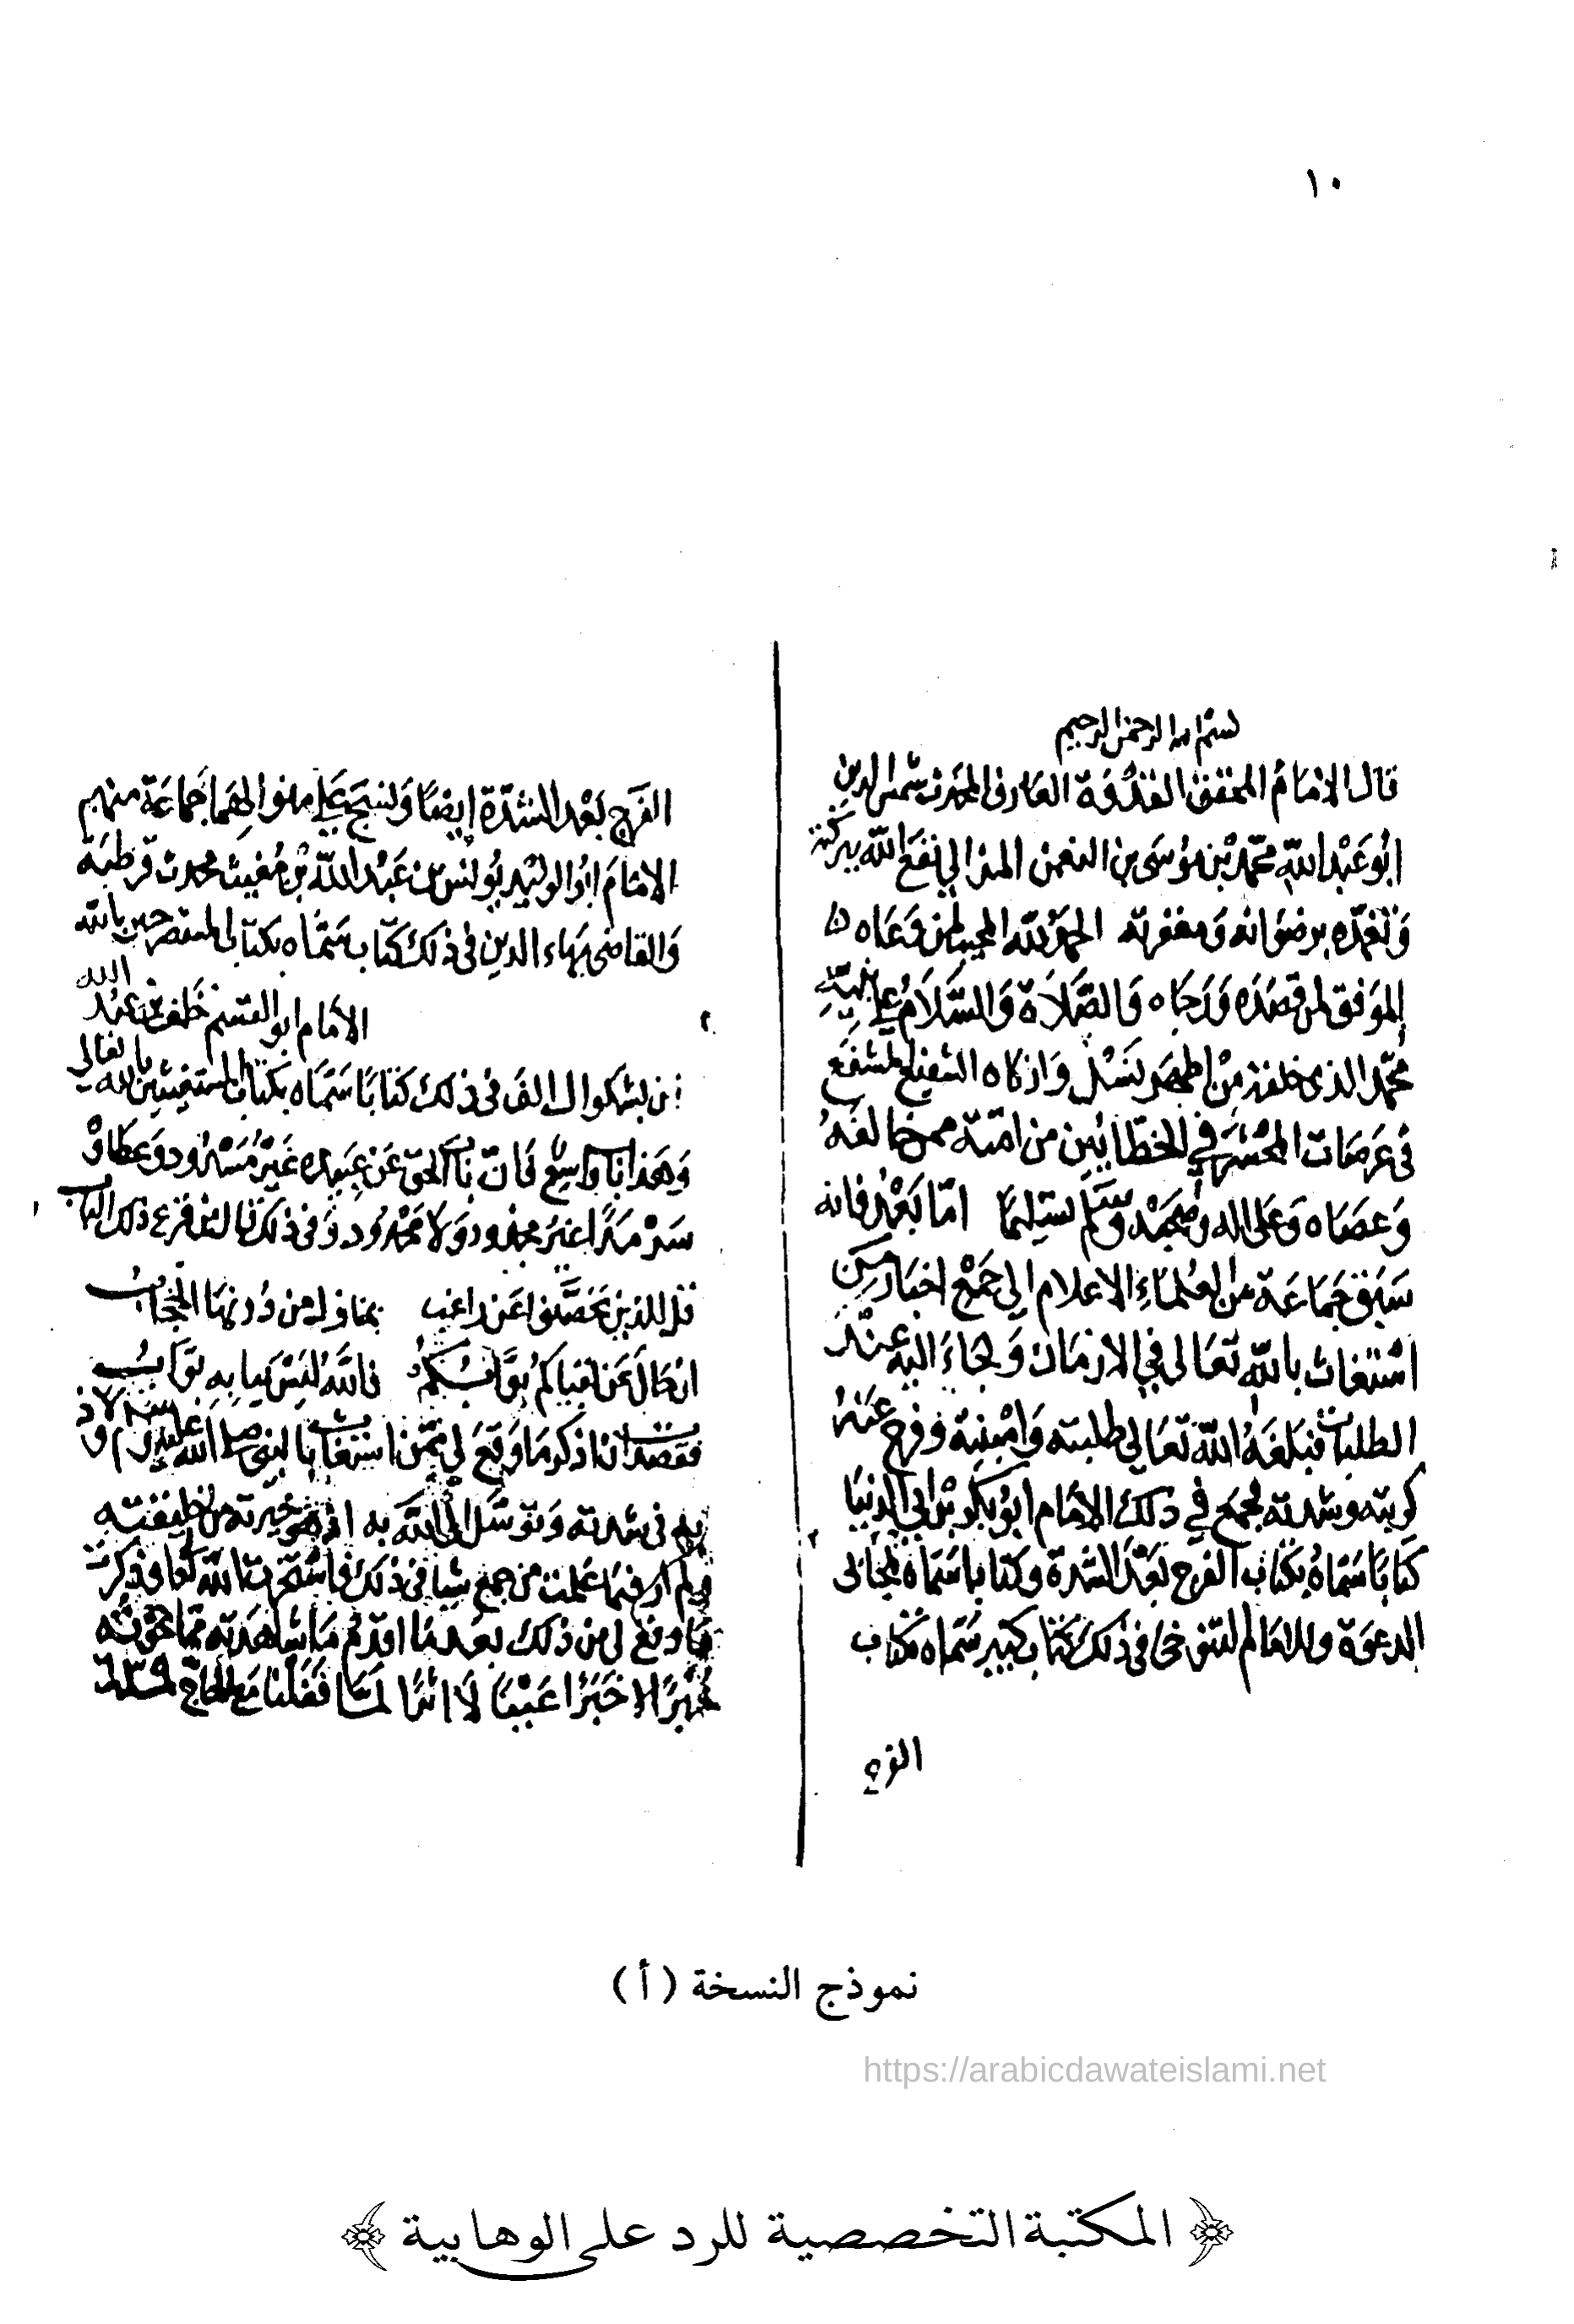 ١٠
بسم الله الرحمن الرحيم
قال الامام المحقق القدوة العارف المحدث شمس الدين
ابو عبد الله محمد بن موسى بن النعمن المزالي نفع الله ببركته
وتغمده برضوانه ومغفرته الحمد لله المجيب لمن دعاه
الموفق لمن قصده ورجاه والصلاة والسلام على نبيه
محمد الذي خلقه من اطهر نسل وازكاه الشفيع المشفع
في عرصات المحشر في الخطائين من امته ممن خالفه
وعصاه وعلى اله وصحبه وسلم تسليما اما بعد فانه
سبق جماعة من العلماء الاعلام الى جمع اخبار من
استغاث بالله تعالى في الازمات ولجاء اليه عند
الطلبات فبلغه الله تعالى طلبته وامنيته وفرج عنه
كربته وشدته فجمع في ذلك الامام ابو بكر بن ابي الدنيا
كتابا سماه بكتاب الفرج بعد الشدة وكتابا سماه بمجابى
الدعوة وللامام التنوخي في ذلك كتاب كبير سماه كتاب
الفرج
الفرج بعد الشدة ايضا ونسج على منوالهما جماعة منهم
الامام ابو الوليد يونس بن عبد الله بن مغيث محدث قرطبة
والقاضي بهاء الدين في ذلك كتاب سماه بكتاب المستصرخين بالله
الامام ابو القسم خلف بن عبد الله
بن بشكوال الف في ذلك كتابا سماه بكتاب المستغيثين بالله تعالى
وهذا باب واسع فان باب الحق عن عبيده غير مسدود وعطاؤه
سرمدا غير مجذوذ ولا محدود وفي ذلك قال من قرع ذلك الباب
قل للذين تحصنوا عن راغب بمنازل من دونها الحجاب
ان حال عن لقياكم بوابكم فالله ليس لبابه بواب
فقصدت ان اذكر ما وقع لي ممن استغاث بالنبي صلى الله عليه وسلم ولاذ
به في شدته وتوسل الى الله به اذ هو خيرته من خليقته
ولم ار فيما علمت من جمع شيا في ذلك فاستخرت الله تعالى فذكرت
ما وقع لي من ذلك بعد ما اقدم ما شاهدته مما
خبرا لا خبرا عينا لا اثرا لما قفلنا مع الحاج سنة ٦٣٩
نموذج النسخة ( أ )
https://arabicdawateislami.net
المكتبة التخصصية للرد على الوهابية